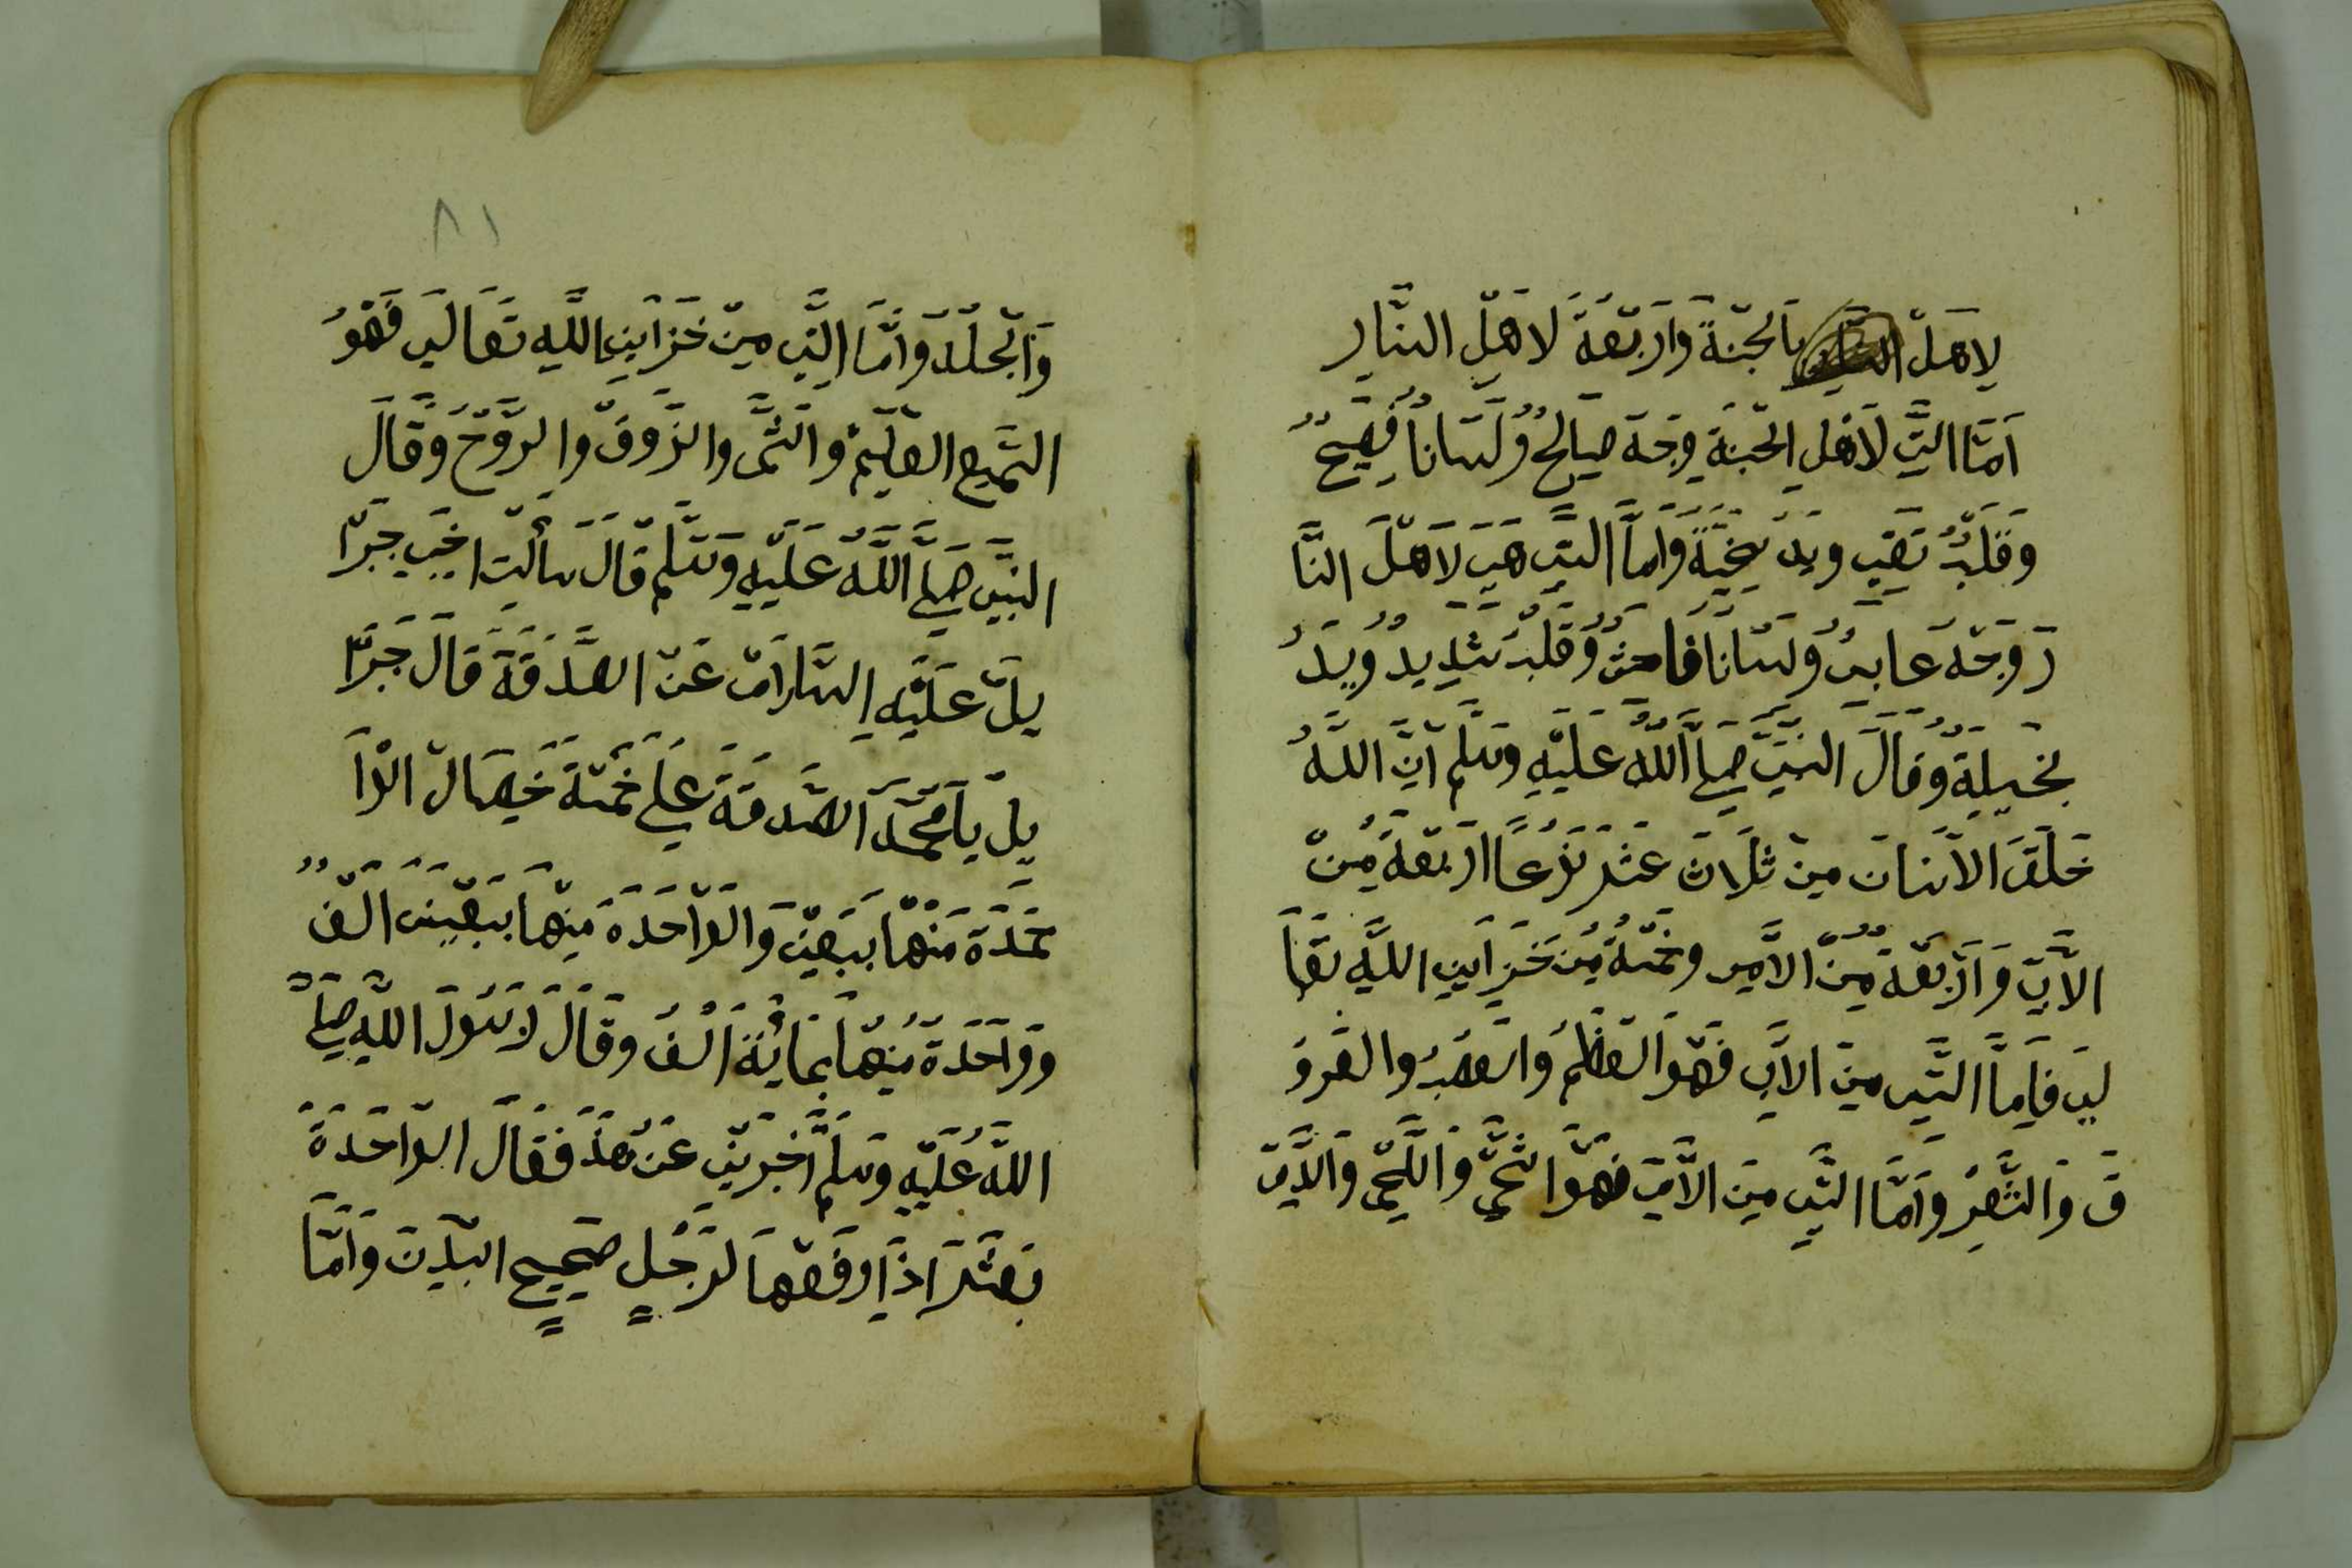 لِاهَلْ بالجنّةً وَاَرْبَعَةَ لاَهَلْ النّار
اَمّا الّتِي لاَهْلِ الجَنَةِ وِجْهَ صَالِحٌ وُلَسَاناً فَصِيحٌ
وَقَلَبٌ تَقِي ويَدَ سخِيَّةً وَامَّا الَّتِي هِيَ لاَهْلَ النَّا
رَ وَجْهَ عَابِسٌ وَلسَانًا فَاحش وَقَلَبٌ شَدِيدٌ وُيَدَ
بَخيلةٌ وَقَالَ النّبِيَّ صَلَّ اللَّهُ عَلَيْهِ وَسَلّم اَنَّ اللَّهُ
خَلَقَ الاَنسَان مِنْ ثَلَاثَ عَشَرَ نَوْعًا اربَعَةُ مِنْ
الاَبِّ وَاَرْبَعَةٌ مِنْ الاَمِّ وخَمْسَةُ مِن خَزَاينِ اللَّهِ تَعَا
لي فَاِمَّا الَّتِي مِنَ الاَبِ فَهْوَ العَظْمُ وَالعَصَبُ والعَرو
قَ وَالشَّعِرُ وَاَمَّا الَّتِي مِنَ الاُمِّ فَهُوَ الشَّحْمِ وَاللَّحْمِ وَالدَّمِّ
٨١
وَالْجلْدَ وَامَّا الَّتِي مِنْ خَزَاَينِ اللَّهِ تَعَالَي فَهْوُ
السَّمِع العَلِيمْ وَالشَّم والذَّوقْ وَالرَّوْحْ وَقَالَ
النبَّي صَلَّ اللَّهُ عَلَيْهِ وَسَلَّمْ قَالَ سَألْتَ اخِي جِبْرَا
يلَ عَلَيْهِ السَّلَامْ عَنْ الصَّدَقَةَ قَالَ جَبْرَا
يلْ يَا مُحَمَّدَ الصَّدقَةَ عَلَي خَمْسَةَ خِصَالْ الوْاَ
حَدَةَ مَنْهَا بسَبعِينْ وَالوَاحَدَةَ مِنهَا بسَبعِينَ الْفٌ
وَوَاحَدَةَ مِنهَا بمَايُةَ اَلْفُ وَقَالَ لرَسُولَ اللَّهِ صَلَ
اللَّهُ عَلَيْهِ وَسَلم اَخبِرْنِي عَنْ هذَ فَقَالَ الوَاحَدَةَ
بَعَشَرَ اذَا دفعَهَا لرَجُلٍ صَحِيحِ البَدَنَ وَاَمّا